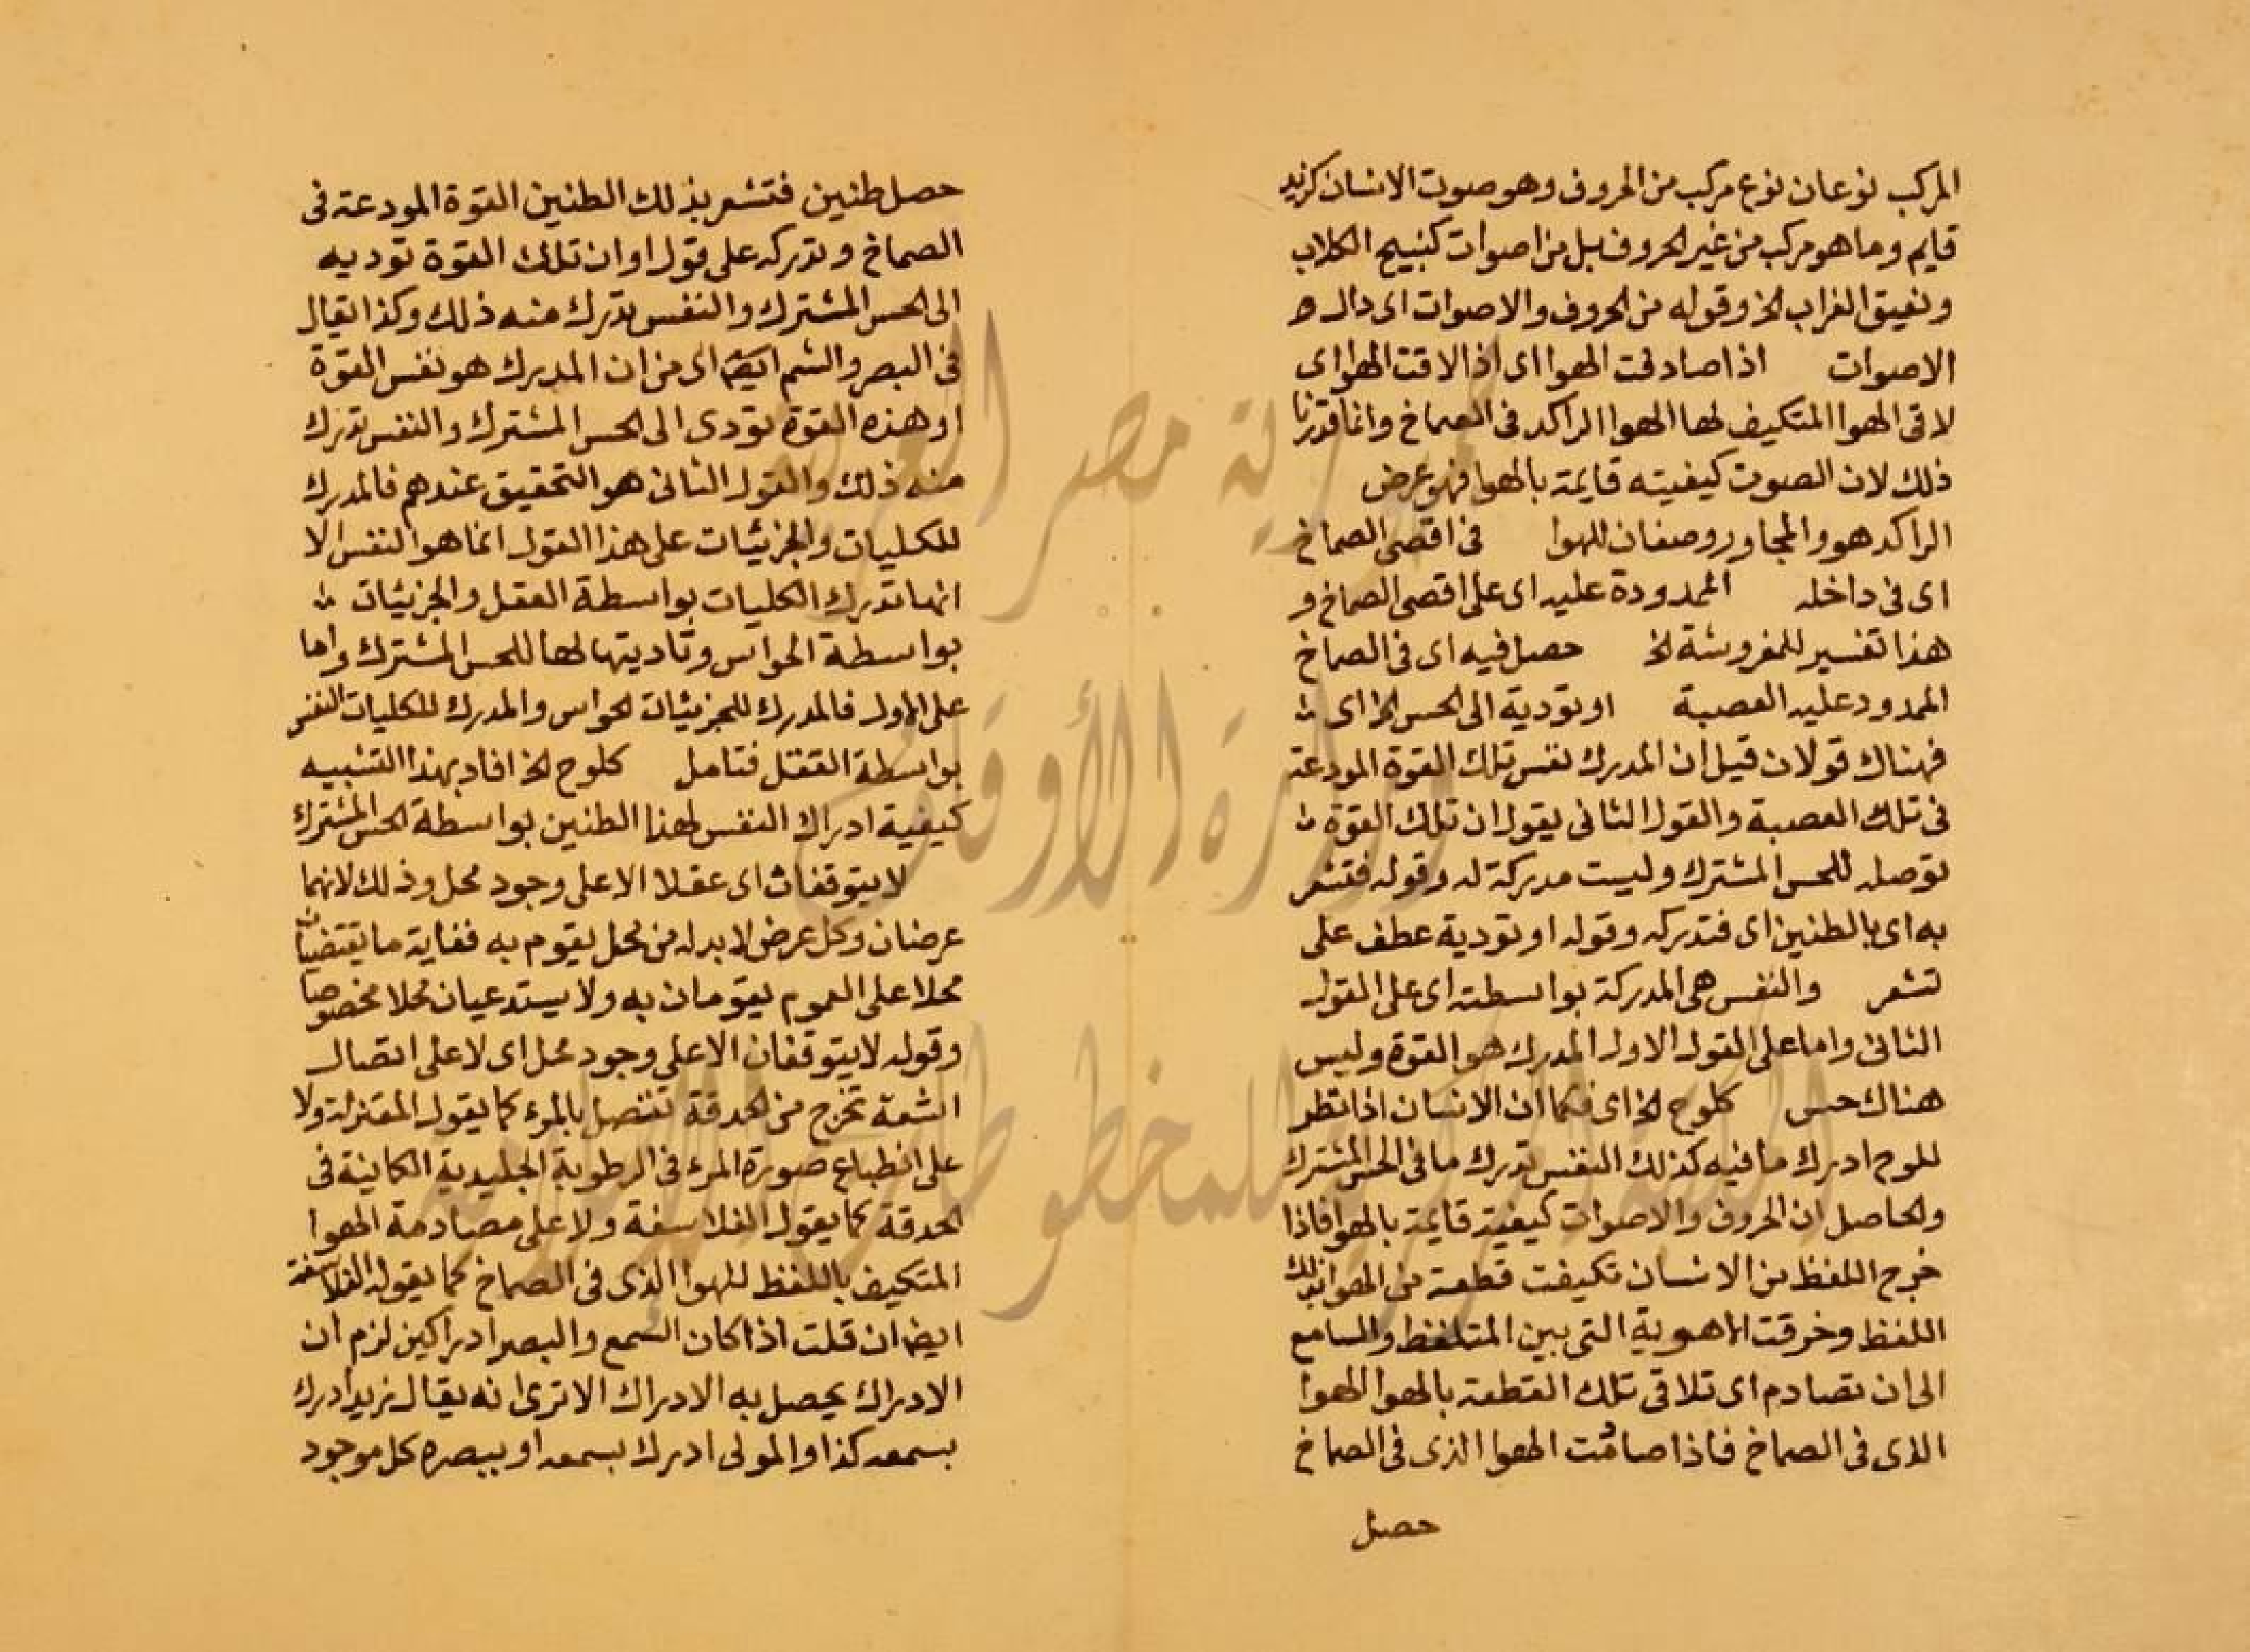 المركب نوعان نوع مركب من الحروف وهو صوت الانسان كزيد
قايم وما هو مركب من غير الحروف بل من اصوات كنبيح الكلاب
ونغيق الغراب الخ وقوله من الحروف والاصوات اى دال ه
الاصوات اذا صادفت الهوا اى اذا لاقت الهوا اى
لاقى الهوا المتكيف لها الهوا الراكد فى الصماخ وانما قدرنا
ذلك لان الصوت كيفيته قايمة بالهوا فهو عرض
الراكد هو والمجاور وصفان للهوا فى اقصى الصماخ
اى فى داخله الممدودة عليه اى على اقصى الصماخ و
هذا تفسير للمفروشة الخ حصل فيه اى فى الصماخ
الممدود عليه العصبة او توديه الى الحس الخ اى
فهناك قولان قيل ان المدرك نفس تلك القوة المودعة
فى تلك العصبة والقول الثانى يقول ان تلك القوة
توصله للحس المشترك وليست مدركة له وقوله فتشعر
به اى بالطنين اى فتدركه وقوله او توديه عطف على
تشعر والنفس هى المدركة بواسطته اى على القول
الثانى واما على القول الاول المدرك هو القوة وليس
هناك حس كلوح الخ اى فكما ان الانسان اذا نظر
للوح ادرك ما فيه كذلك النفس تدرك ما فى الحس المشترك
والحاصل ان الحروف والاصوات كيفية قايمة بالهوا فاذا
خرج اللفظ من الانسان تكيفت قطعة من الهوا بذلك
اللفظ وخرقت الاهوية التى بين المتلفظ والسامع
الى ان تصادم اى تلاقى تلك القطعة بالهوا الهوا
الذى فى الصماخ فاذا صادمت الهوا الذى فى الصماخ
حصل
حصل طنين فتشعر بذلك الطنين القوة المودعة فى
الصماخ وتدركه على قول او ان تلك القوة توديه
الى الحس المشترك والنفس تدرك منه ذلك وكذا يقال
فى البصر والشم ايضا اى من ان المدرك هو نفس القوة
او هذه القوة تودى الى الحس المشترك والنفس تدرك
منه ذلك والقول الثانى هو التحقيق عندهم فالمدرك
للكليات والجزئيات على هذا القول انما هو النفس الا
انها تدرك الكليات بواسطة العقل والجزئيات
بواسطة الحواس وتاديتها لها للحس المشترك واما
على الاول فالمدرك للجزئيات الحواس والمدرك للكليات النفس
بواسطة العقل فتامل كلوح الخ افاد بهذا التشبيه
كيفية ادراك النفس لهذا الطنين بواسطة الحس المشترك
لا يتوقفان اى عقلا الا على وجود محل وذلك لانهما
عرضان وكل عرض لا بد له من محل يقوم به فغاية ما يقتضيان
محلا على العموم يقومان به ولا يستدعيان محلا مخصوصا
وقوله لا يتوقفان الا على وجود محل اى لا على اتصال
اشعة تخرج من الحدقة تتصل بالمرء كما يقول المعتزلة ولا
على انطباع صورة المرء فى الرطوبة الجليدية الكاينة فى
الحدقة كما يقول الفلاسفة ولا على مصادمة الهوا
المتكيف باللفظ للهوا الذى فى الصماخ كما يقوله الفلاسفة
ايضا ان قلت اذا كان السمع والبصر ادراكين لزم ان
الادراك يحصل به الادراك الا ترى انه يقال زيد ادرك
بسمعه كذا والمولى ادرك بسمعه او ببصره كل موجود
جمهورية مصر العربية
وزارة الأوقاف